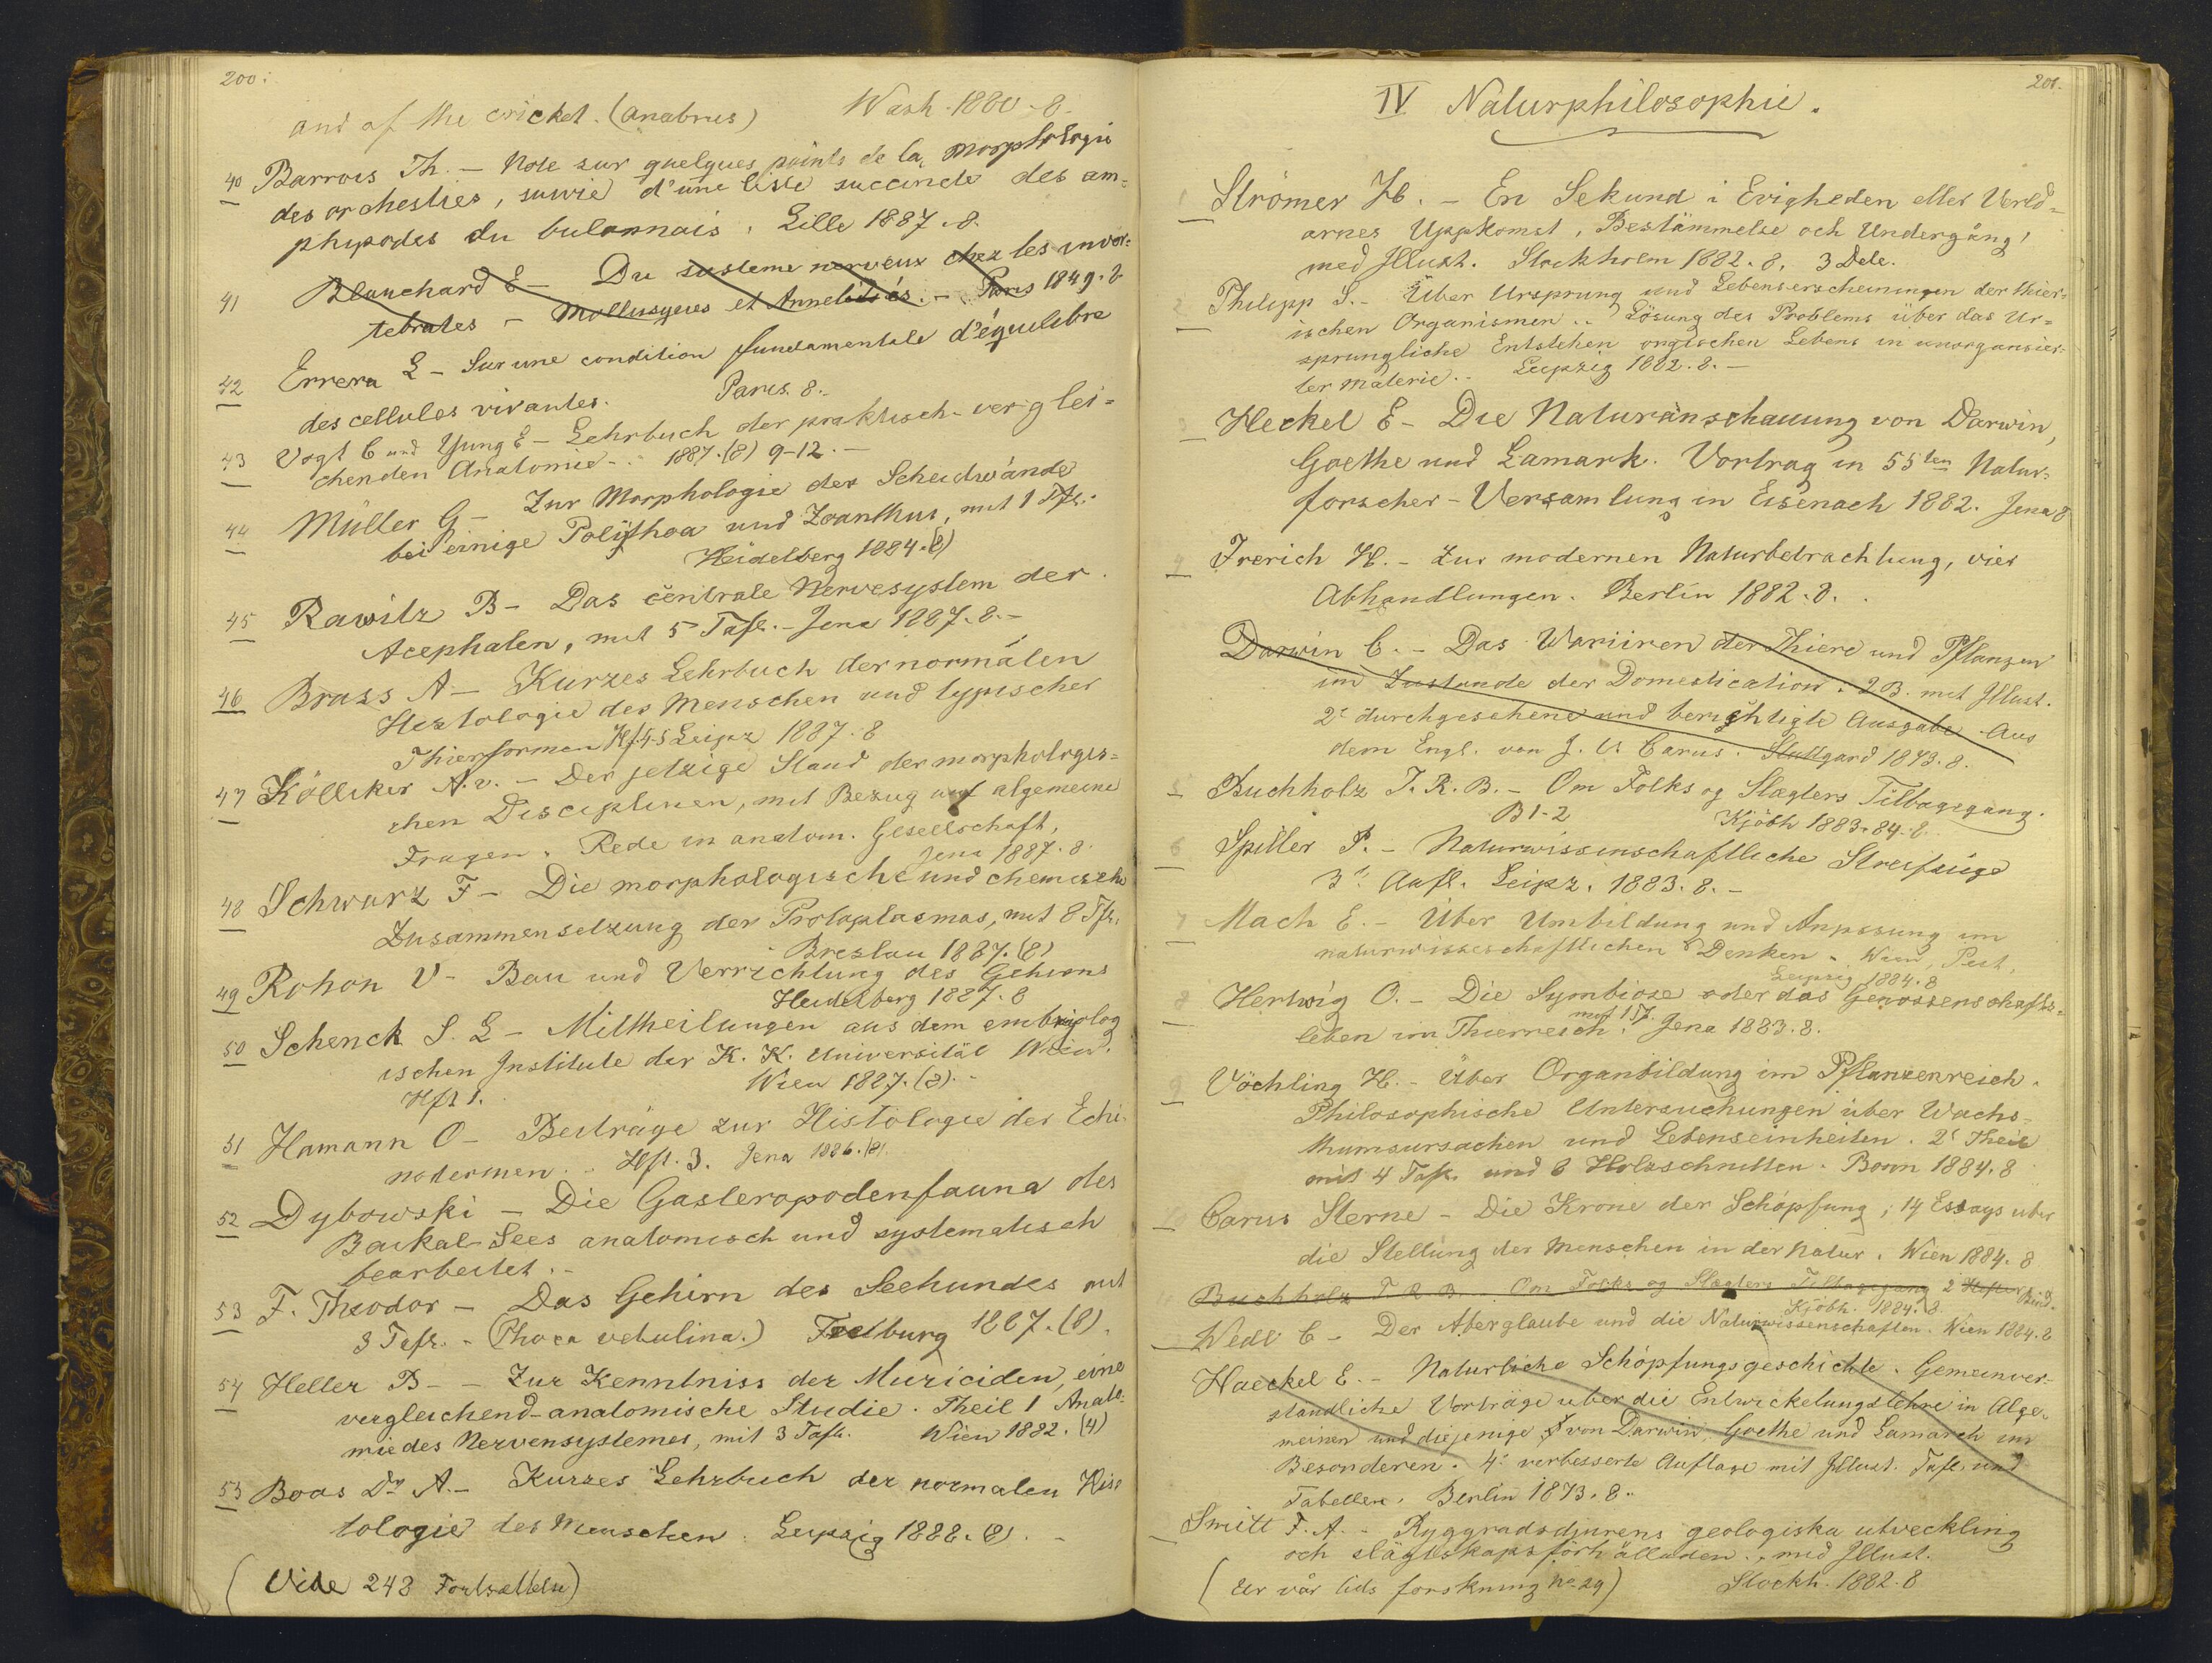 200.
and of the cricket. (anabrus) Wash. 1880 - 8.
40 Barrois Th. – Note sur quelques points de la morphologie
des orchesties, suivie d'une liste succincte des am=
phipodes du bulonnais. Lille 1887. 8.
41 Blanchard E – Du systeme nerveux chez les inver=
tebrates – Mollusques et Annelides. – Paris 1849. 8
42 Errera L – Sur une condition fundamentale d'équilibre
des cellules vivantes. Paris. 8. –
43 Vogt C und Yung E – Lehrbuch der praktisch-verglei=
chenden Anatomie – . 1887. (8) 9-12. –
44 Müller G – Zur Morphologie der Scheidwände
bei einige Polythoa und Zoanthus, mit 1 Tfl.
Heidelberg 1884. (8)
45 Rawitz B – Das centrale Nervesystem der
Acephalen, mit 5 Tafl. – Jena 1887. 8. –
46 Brass A – Kurzes Lehrbuch der normalen
Histologie des Menschen und typischer
Thierformen Hf. 4-5 Leipz 1887. 8
47 Kölliker A. v. – Der jetzige Stand der morphologis=
chen Disciplinen, mit Bezug auf algemeine
Fragen. Rede in anatom. Gesellschaft,
Jena 1887. 8.
48 Schwarz F – Die morphologische und chemische
Zusammensetzung der Protoplasmas, mit 8 Tfl.
Breslau 1887. (8)
49 Rohon V – Bau und Verrichtung des Gehirns
Heidelberg 1887. 8
50 Schenck S. L – Mittheilungen aus dem embriolog
ischen Institute der K. K. Universität Wien.
Hft 1. Wien 1887. (8). –
51 Hamann O – Beiträge zur Histologie der Echi-
nodermen. – Hft. 3. Jena 1886. (8).
52 Dybowski – Die Gasteropodenfauna des
Baikal-Sees anatomisch und systematisch
bearbeitet. –
53 F. Theodor – Das Gehirn des Seehundes mit
3 Tafl. – (Phoca vetulina.) Freiburg 1887. (8).
54 Heller B – – Zur Kenntniss der Muriciden, eine
vergleichend-anatomische Studie. Theil 1 Anato-
mie des Nervensystemes, mit 3 Tafl. Wien 1882. (4)
55 Boas Dr A. – Kurzes Lehrbuch der normalen His
tologie des Menschen. Leipzig 1888. (8). –
(Vide 243 Fortsættelse)
201.
IV Naturphilosophie.
1 Strömer Hb. – En Sekund i Evigheden eller Verld=
arnes Uppkomst, Bestämmelse och Undergång,
med Illust. Stockholm 1882. 8. 3 Dele.
2 Philipp S. – Über Ursprung und Lebenserscheinungen der thier=
ischen Organismen .. Lösung des Problems über das Ur=
sprungliche Entstehen orgischen Lebens in unorganisier=
ter Materie. – Leipzig 1882. 8. –
3 Heckel E – Die Naturanschauung von Darwin,
Goethe und Lamark. Vortrag in 55ten Natur-
forscher-Versamlung in Eisenach 1882. Jena 8
4 Frerich H. – Zur modernen Naturbetrachtung, vier
Abhandlungen. Berlin 1882. 8.
Darwin C. – Das Wariiren der Thiere und Pflanzen
im Zustande der Domestication. 2 B. mit Illust.
2e durchgesehene und berichtigte Ausgabe. Aus
dem Engl. von J. V. Carus. Stuttgard 1873. 8.
5 Buchholz T. R. B. – Om Folks og Slægters Tilbagegang.
B 1-2 Kjöbh 1883-84. 8.
6 Spiller P. – Naturwissinschaftliche Streifzüge
3te Aufl. Leipz. 1883. 8. –
7 Mach E. – Über Umbildung und Anpssung im
naturwisseschaftlichen Denken. Wien, Pest,
Leipzig 1884. 8
8 Hertwig O. – Die Symbiose oder das Genossenschafts=
leben im Thierreich. mit 1 T. Jena 1883. 8.
9 Vöchling H. – Über Organbildung im Pflanzenreich.
Philosophische Untersuchungen über Wachs-
thumsursachen und Lebenseinheiten. 2e Theil
mit 4 Tafl. und 8 Holzschnitten. Bonn 1884. 8
10 Carus Sterne – Die Krone der Schöpfung, 14 Essays uber
die Stellung der Menschen in der Natur. Wien 1884. 8
Buchholz T. R. B. – Om Folks og Slægters Tilbagegang 2 Hefter Bind.
Kjöbh. 1884. 8.
Wedl C – Der Aberglaube und die Naturwissenschaften. Wien 1884. 8
Haeckel E. – Naturliche Schöpfungsgeschichte. Gemeinver-
ständliche Vorträge uber die Entwickelungslehre in Alge-
meinen und diejenige von Darwin, Goethe und Lamarch im
Besonderen. 4e verbesserte Auflage mit Illust. Tafl. und
Tabellen. Berlin 1873. 8.
Smitt F. A. – Ryggradsdjurens geologiska utveckling
och slägtskapsförhålladen. med Illust.
(Ur vår tids forskning No. 29) Stockh. 1882. 8